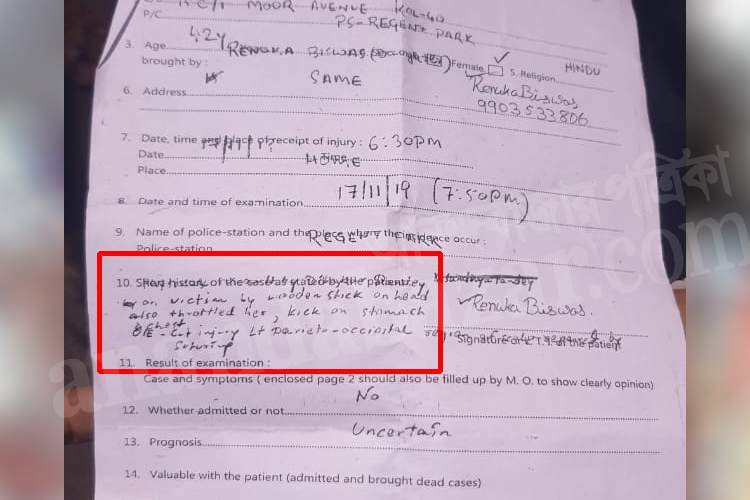 MOOR AVENUE KOL-40
P/C
PS-REGENT PARK
3. Age 42y RENUKA BISWAS Female 5. Religion HINDU
brought by :
SAME
Renuka Biswas
6. Address
9903533806
7. Date, time and place of receipt of injury : 6:30PM
Date
Place
17/11/19 (7:50PM)
8. Date and time of examination
9. Name of police-station and the place where the incidence occur :
REGENT PARK
Police-station
10. Short history of the case as stated by the patient
on victim by wooden stick on head
also throttled her, kick on stomach
& chest
Renuka Biswas.
O/E - Cut injury Lt parieto-occipital
Signature or L.T.I. of the patient
suturing
11. Result of examination :
Case and symptoms ( enclosed page 2 should also be filled up by M. O. to show clearly opinion)
No
12. Whether admitted or not
Uncertain
13. Prognosis
14. Valuable with the patient (admitted and brought dead cases)